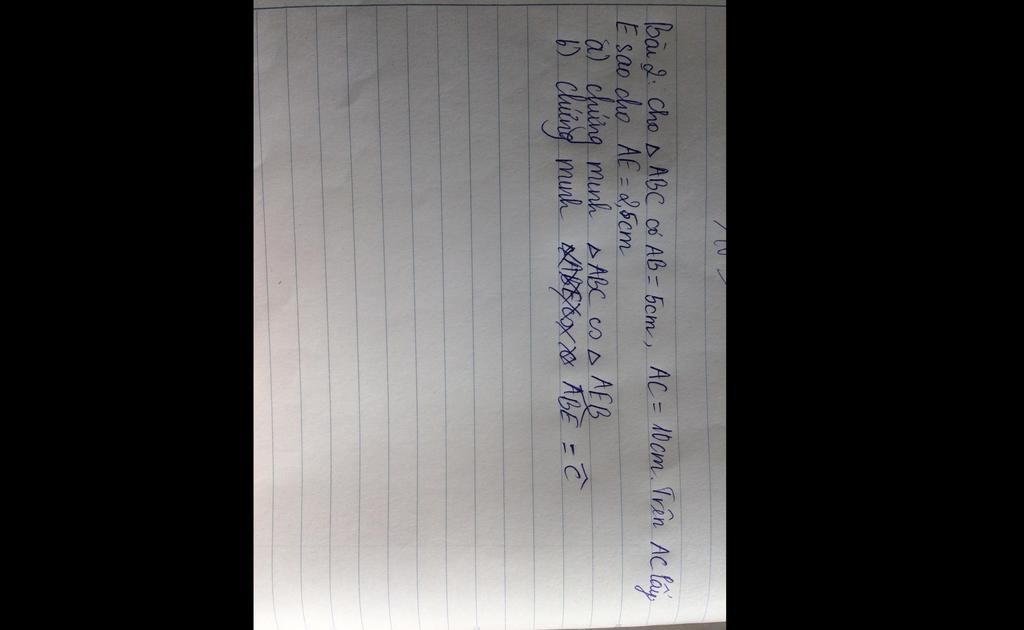 Bài 2: Cho △ ABC có AB = 5cm, AC = 10cm. Trên AC lấy
E sao cho AE = 2,5cm
a) chứng minh △ ABC ∽ △ AEB
b) chứng minh ABE = C